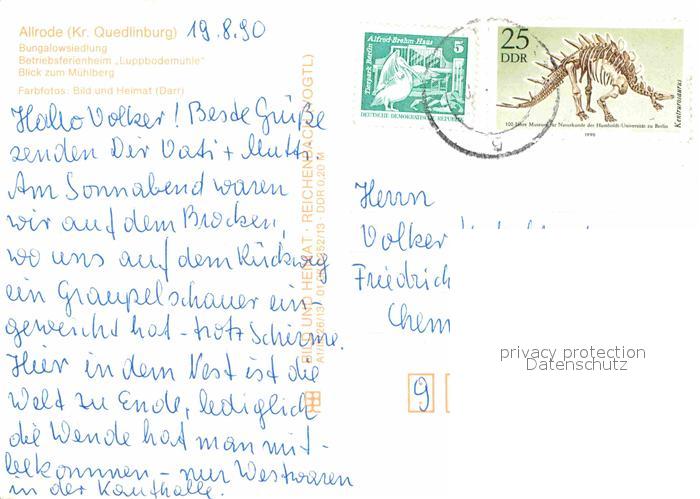 Allrode (Kr. Quedlinburg) 19.8.90
Bungalowsiedlung
Betriebsferienheim „Luppbodemühle"
Blick zum Mühlberg
Farbfotos: Bild und Heimat (Darr)
Hallo Volker! Beste Grüße
senden Der Vati + Mutti
Am Sonnabend waren
wir auf dem Brocken,
wo uns auf dem Rückweg
ein Graupelschauer ein-
geweicht hat - trotz Schirme.
Hier in dem Nest ist die
Welt zu Ende, lediglich
die Wende hat man mit-
bekommen - nur Westwaren
in der Kaufhalle.
BILD UND HEIMAT · REICHENBACH (VOGTL)
DDR 0,20 M
Tierpark Berlin
Alfred-Brehm-Haus
5
DEUTSCHE DEMOKRATISCHE REPUBLIK
25
DDR
Kentrurosaurus
100 Jahre Museum für Naturkunde der Humboldt-Universität zu Berlin
1990
Herrn
Volker
Friedrich
Chem
9
privacy protection
Datenschutz